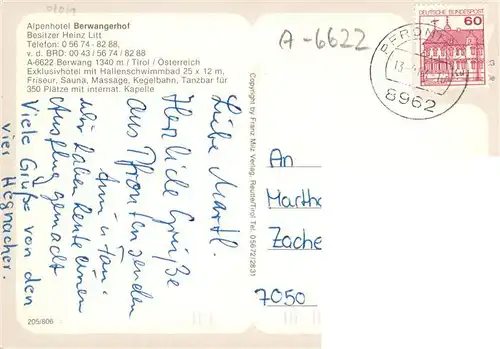 Alpenhotel Berwangerhof
Besitzer Heinz Litt
Telefon: 0 56 74 - 82 88,
v. d. BRD: 00 43 / 56 74 / 82 88
A-6622 Berwang 1340 m / Tirol / Österreich
Exklusivhotel mit Hallenschwimmbad 25 x 12 m,
Friseur, Sauna, Massage, Kegelbahn, Tanzbar für
350 Plätze mit internat. Kapelle
A-6622
DEUTSCHE BUNDESPOST
60
PFRONT
8962
Liebe Martl.
Herzliche Grüße
aus Pfronten senden
Wir haben heute einen
Ausflug gemacht
Viele Grüße von den
vier Hegnacher.
Copyright by Franz Milz Verlag, Reutte/Tirol Tel. 05672/2831
An
Martha
Zache
7050
205/806